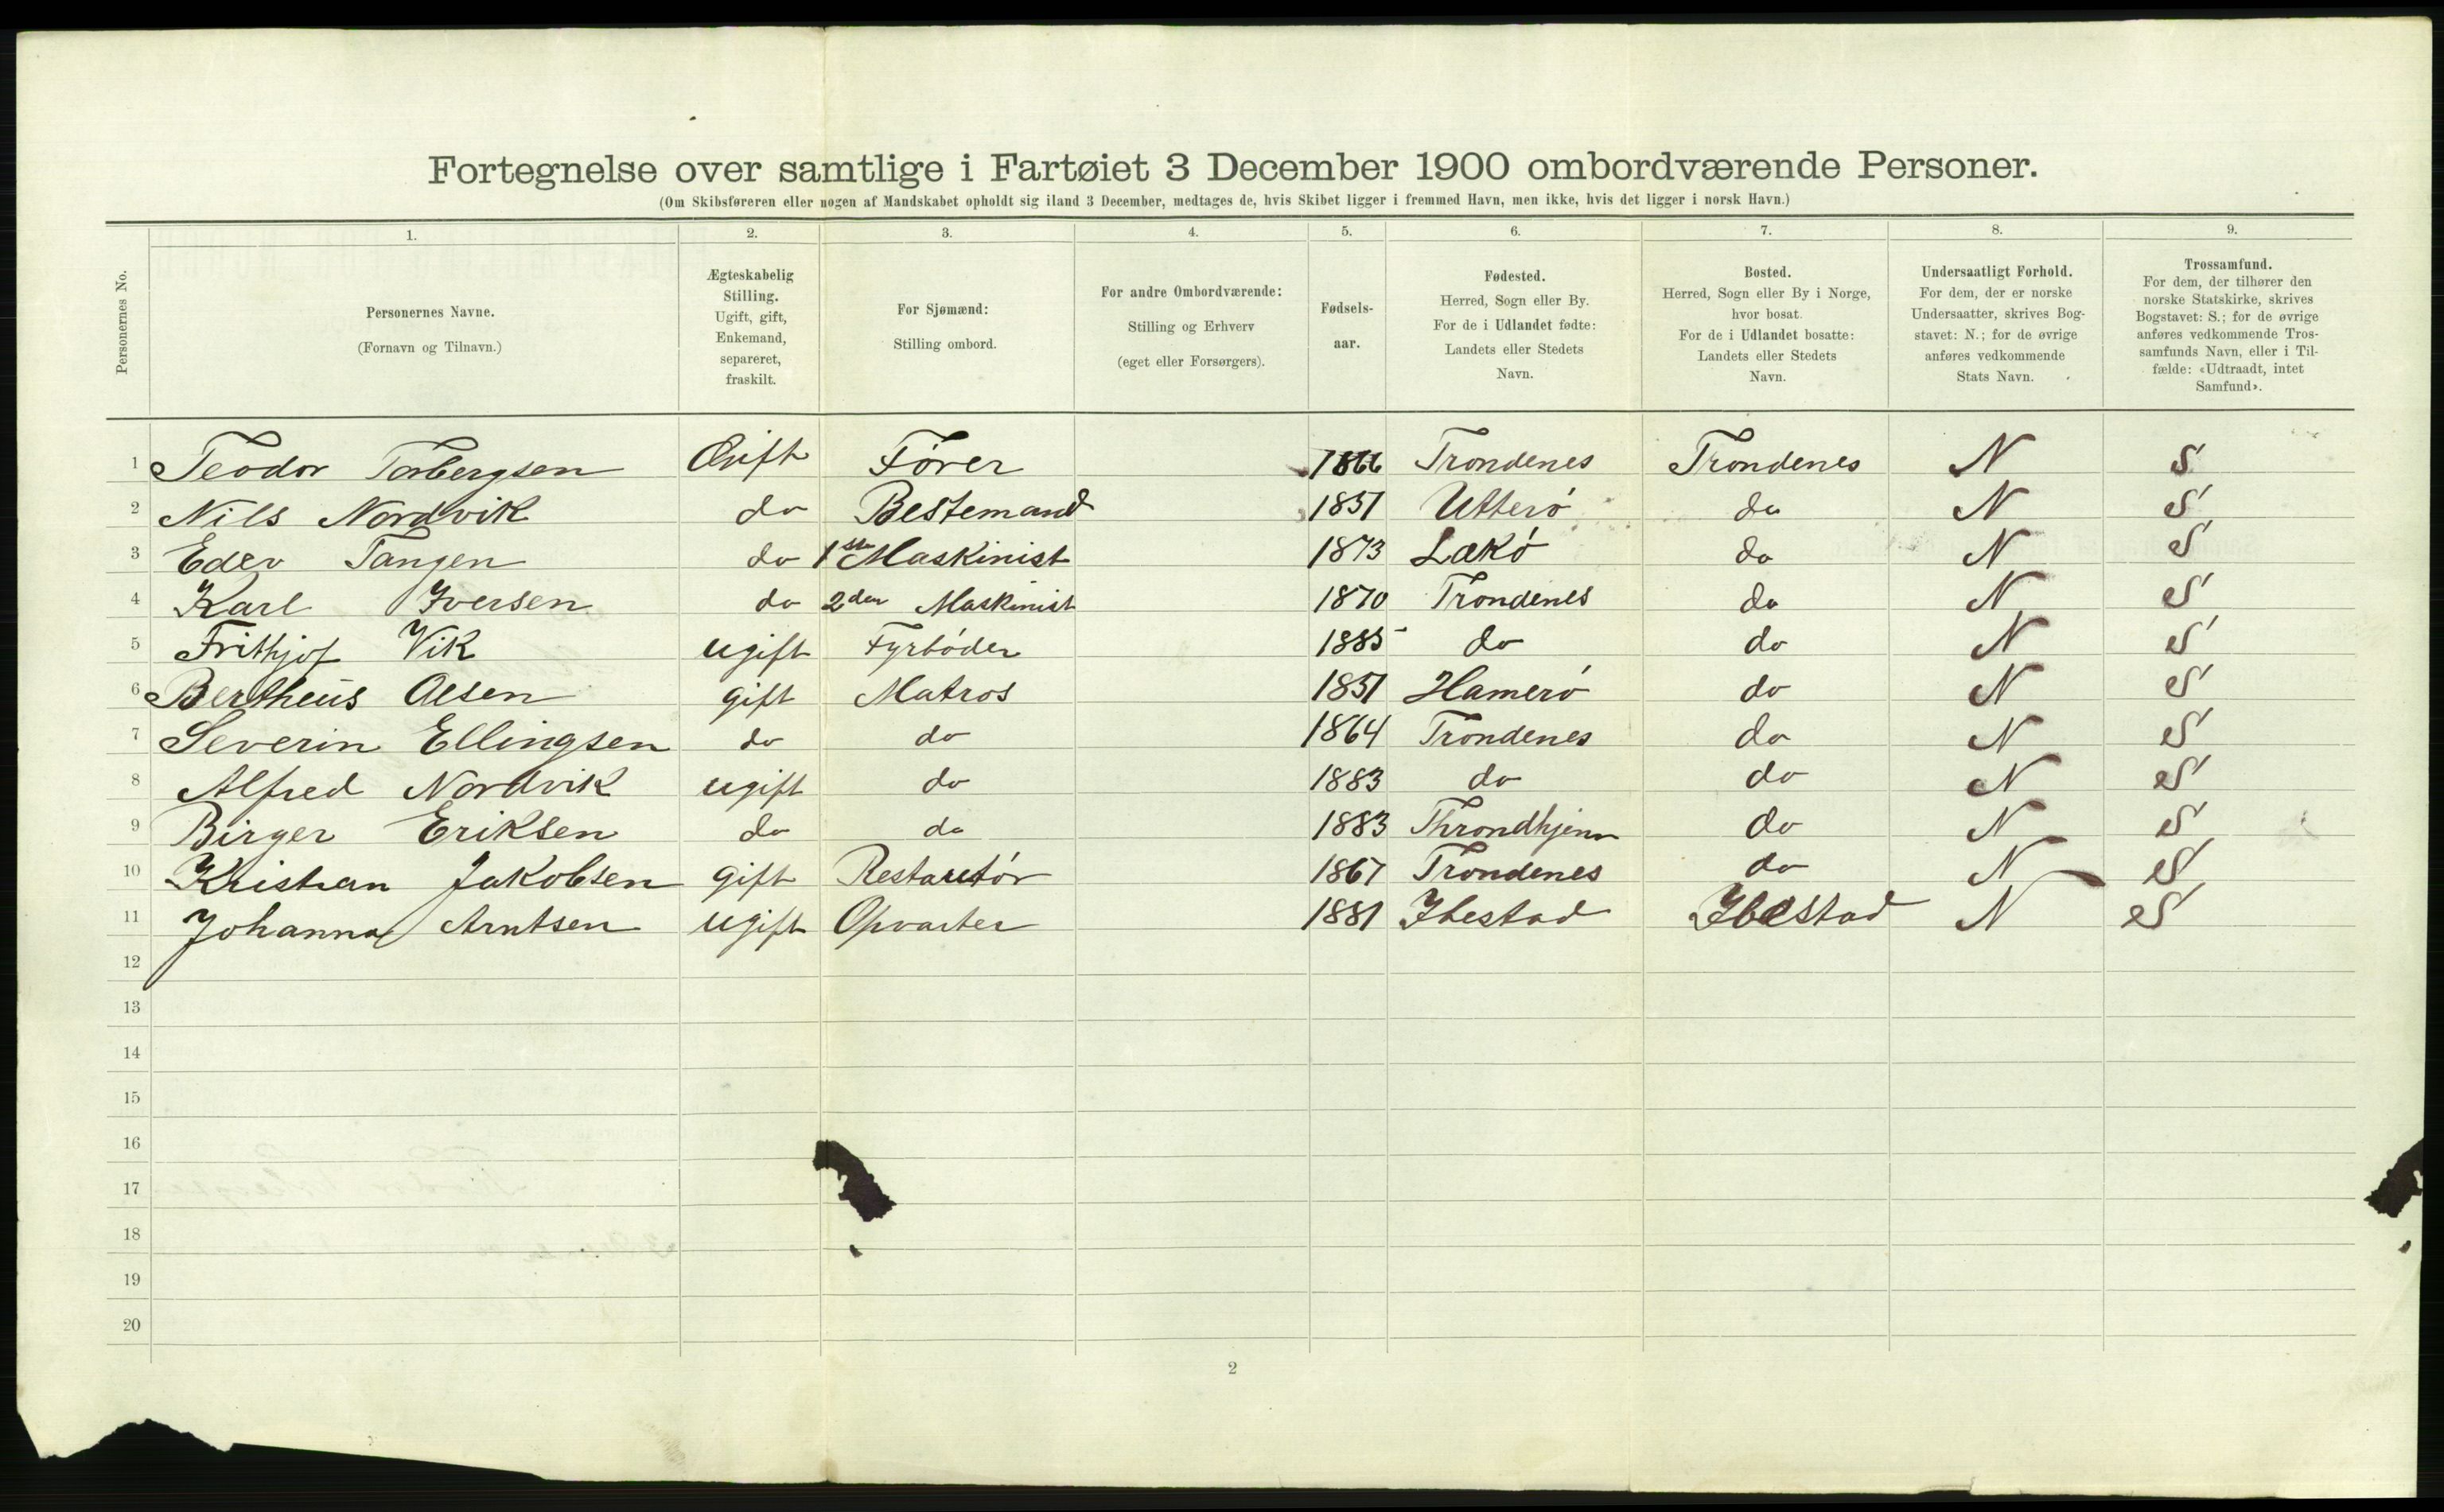 Fortegnelse over samtlige i Fartøiet 3 December 1900 ombordværende Personer.
(Om Skibsføreren eller nogen af Mandskabet opholdt sig iland 3 December, medtages de, hvis Skibet ligger i fremmed Havn, men ikke, hvis det ligger i norsk Havn.)
Personernes No.
1.
Personernes Navne.
(Fornavn og Tilnavn.)
2.
Ægteskabelig
Stilling.
Ugift, gift,
Enkemand,
separeret,
fraskilt.
3.
For Sjømænd:
Stilling ombord.
4.
For andre Ombordværende:
Stilling og Erhverv
(eget eller Forsørgers).
5.
Fødsels-
aar.
6.
Fødested.
Herred, Sogn eller By.
For de i Udlandet fødte:
Landets eller Stedets
Navn.
7.
Bosted.
Herred, Sogn eller By i Norge,
hvor bosat.
For de i Udlandet bosatte:
Landets eller Stedets
Navn.
8.
Undersaatligt Forhold.
For dem, der er norske
Undersaatter, skrives Bog-
stavet: N.; for de øvrige
anføres vedkommende
Stats Navn.
9.
Trossamfund.
For dem, der tilhører den
norske Statskirke, skrives
Bogstavet: S.; for de øvrige
anføres vedkommende Tros-
samfunds Navn, eller i Til-
fælde: «Udtraadt, intet
Samfund».
1 Teodor Torbergsen Gift Fører 1866 Trondenes Trondenes N S
2 Nils Nordvik do Bestemand 1851 do N S
3 Tangen do 1ste Maskinist 1873 do N S
4 Karl Iversen do 2den Maskinist 1870 Trondenes do N S
5 Frithjof Vik ugift Fyrbøder 1885 do do N S
6 Bertheus Olsen gift Matros 1851 Hamerø do N S
7 Severin Ellingsen do do 1864 Trondenes do N S
8 Alfred Nordvik ugift do 1883 do do N S
9 Birger Eriksen do do 1883 Throndhjem do N S
10 Kristian Jakobsen gift Restauratør 1867 Trondenes do N S
11 Johanna Arntsen ugift Opvarter 1881 Ibestad Ibestad N S
12
13
14
15
16
17
18
19
20
2